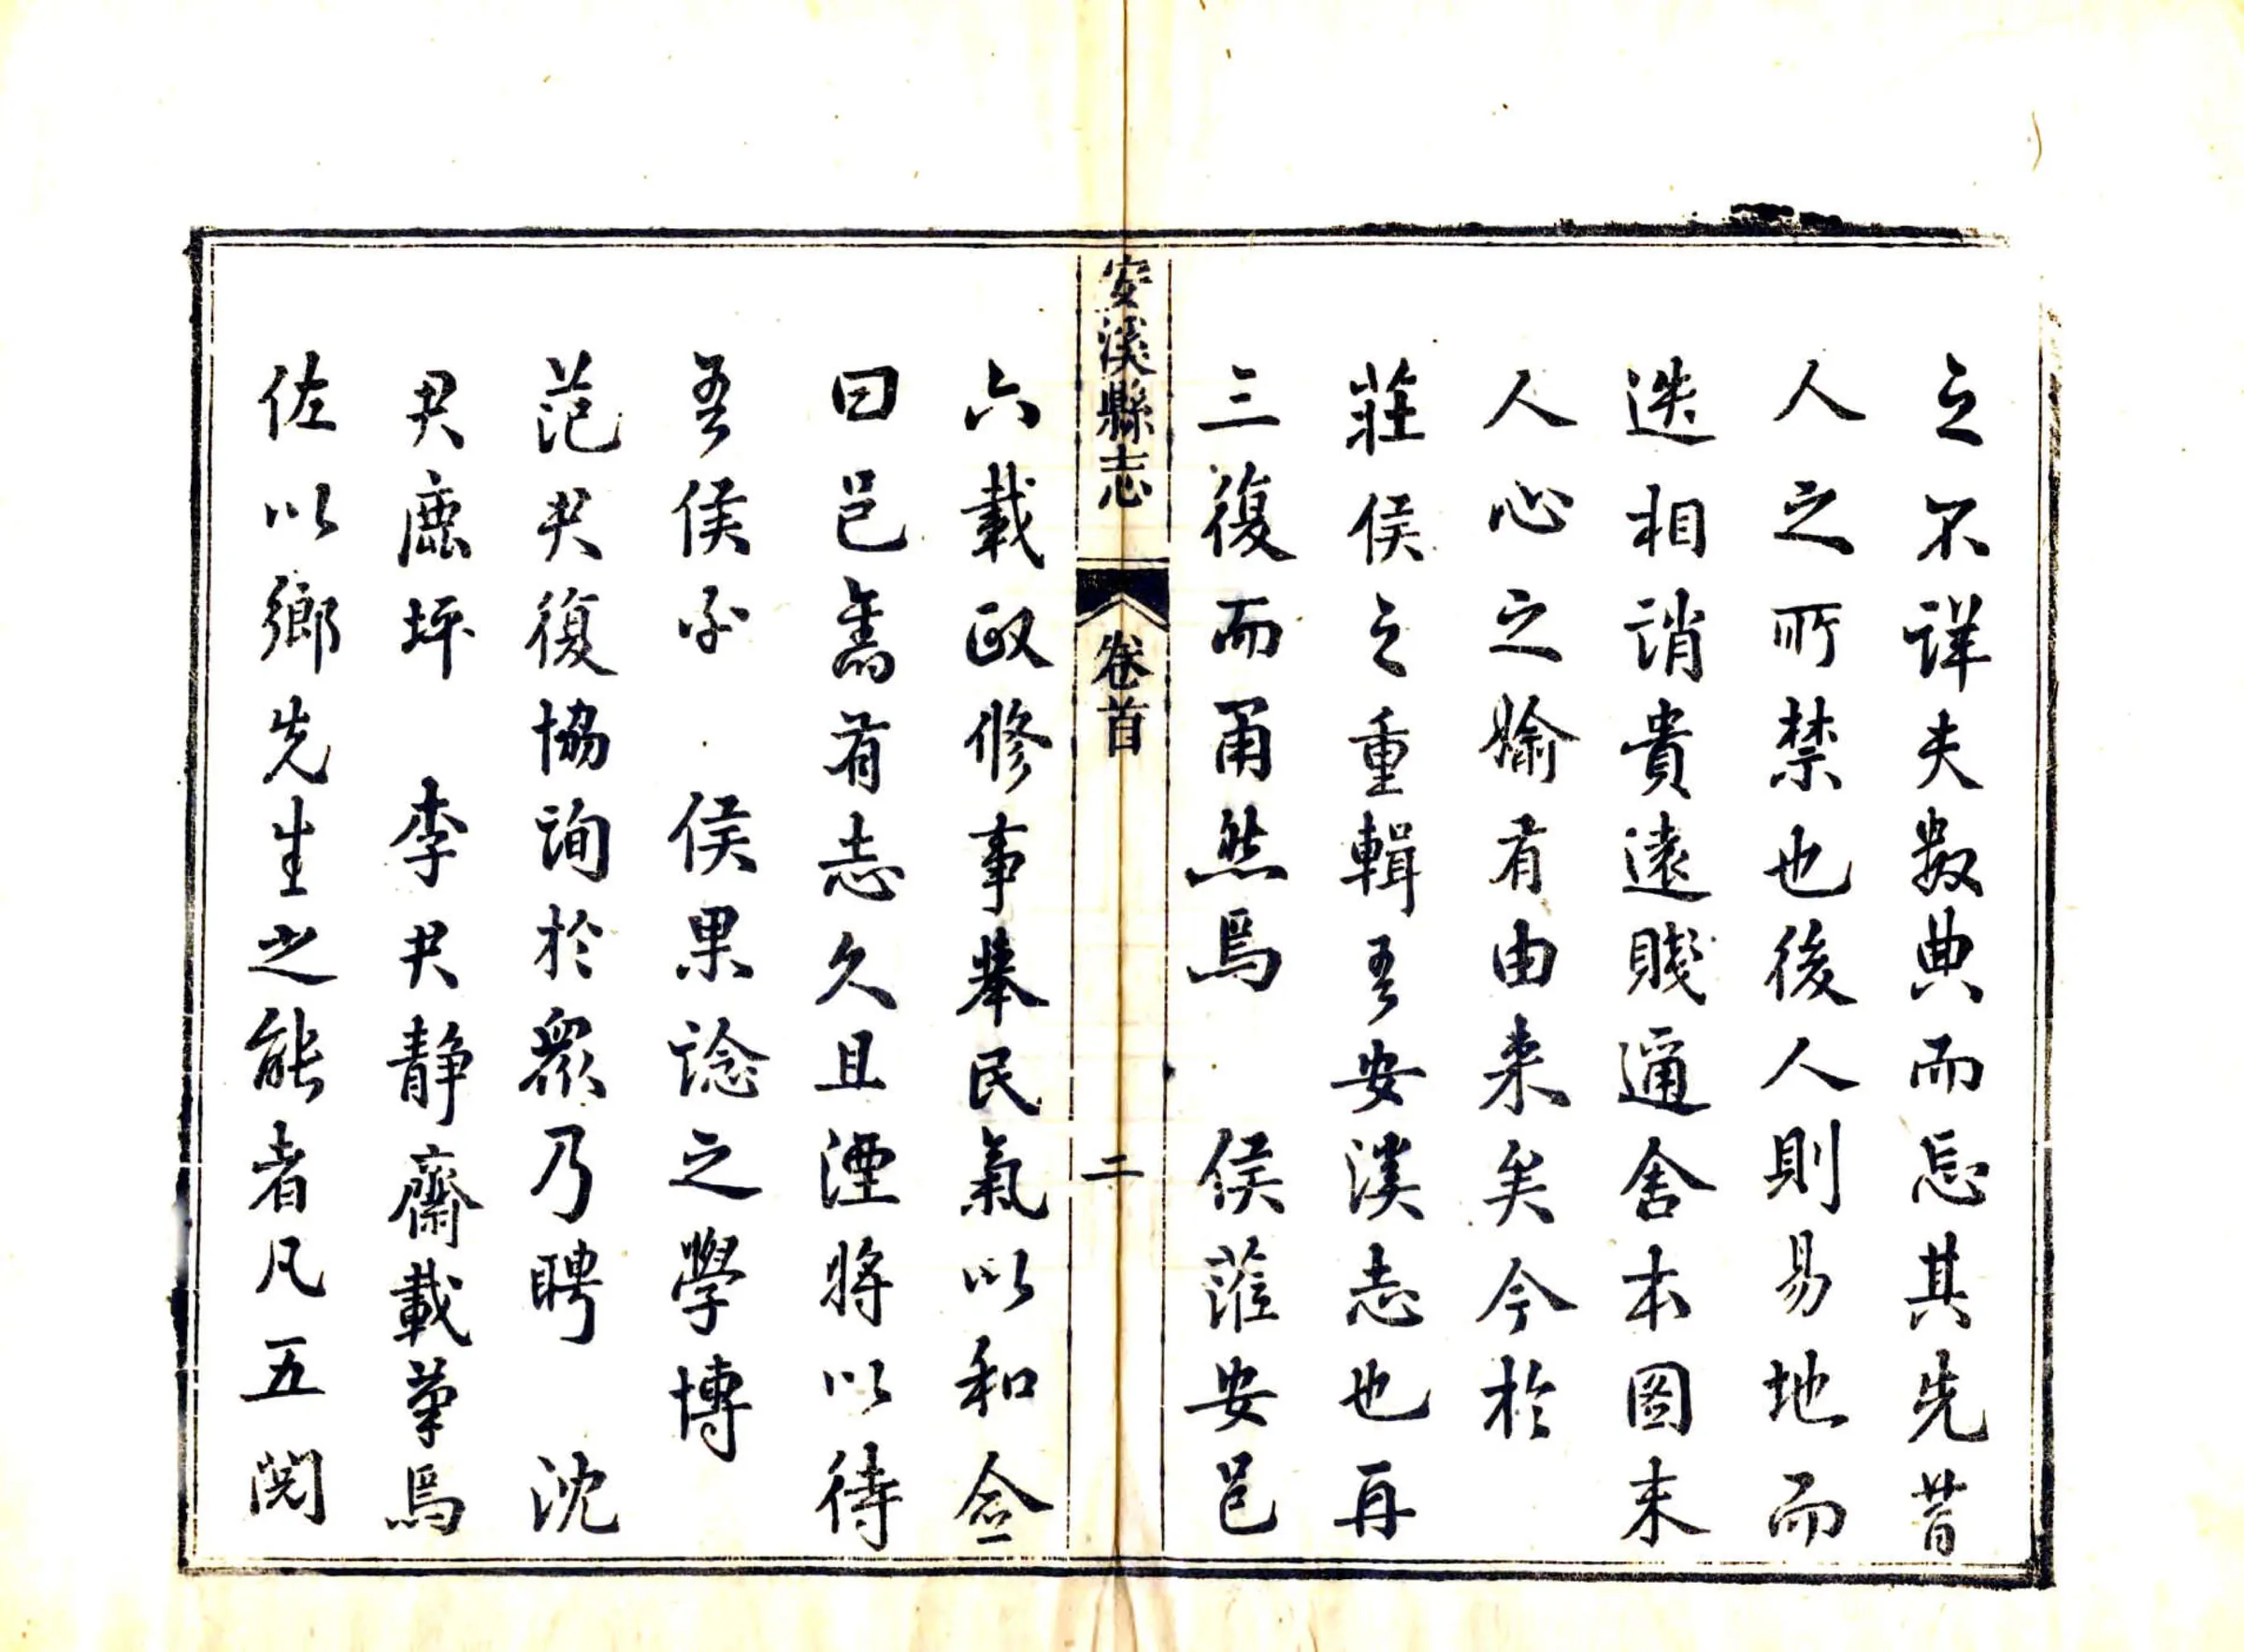 之不詳夫數典而忘其先昔
人之所禁也後人則易地而
迭相誚貴遠賤通舍本圖末
人心之媮有由来矣今於
莊侯之重輯吾安溪志也再
三復而甭然焉 侯蒞安邑
安溪縣志 卷首 二
六載政修事舉民氣以和僉
曰邑舊有志久且湮將以待
吾侯不 侯果諗之學博
范尹復協詢於眾乃聘 沈
尹鹿坪 李尹靜齋載筆焉
佐以鄉先生之能者凡五閱